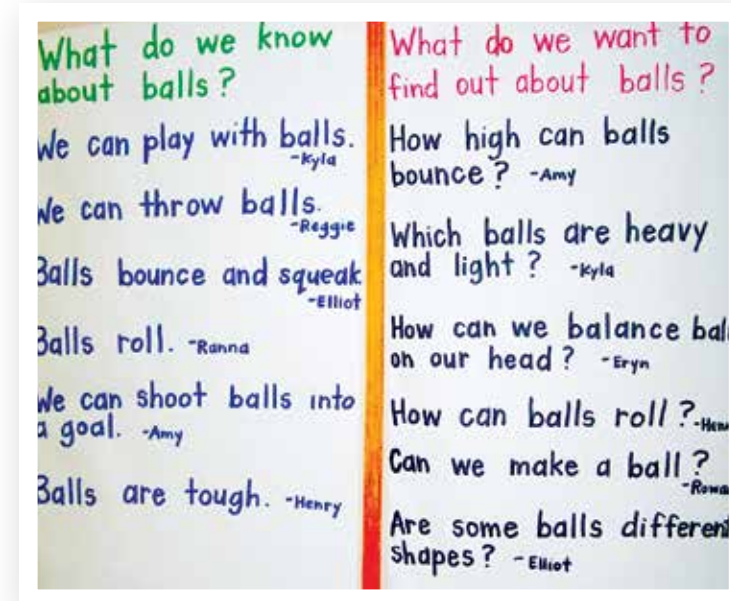 What do we know
about balls?
We can play with balls.
-Kyla
We can throw balls.
-Reggie
Balls bounce and squeak
-Elliot
Balls roll. -Ranna
We can shoot balls into
a goal. -Amy
Balls are tough. -Henry
What do we want to
find out about balls?
How high can balls
bounce? -Amy
Which balls are heavy
and light? -Kyla
How can we balance
on our head? -Eryn
How can balls roll?
Can we make a ball?
Are some balls different
shapes? -Elliot